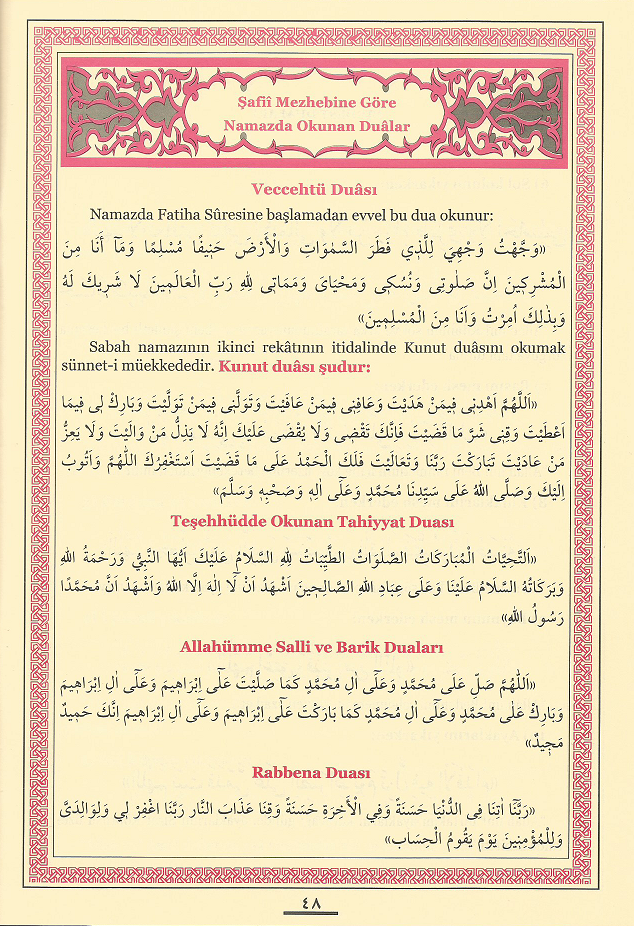 Şafiî Mezhebine Göre
Namazda Okunan Duâlar
Veccehtü Duâsı
Namazda Fatiha Sûresine başlamadan evvel bu dua okunur:
«وَجَّهْتُ وَجْهِيَ لِلَّذِي فَطَرَ السَّمٰوَاتِ وَالْاَرْضَ حَنِيفًا مُسْلِمًا وَمَٓا أَنَا مِنَ
الْمُشْرِكِينَ اِنَّ صَلٰوتِى وَنُسُكِى وَمَحْيَاىَ وَمَمَاتِى لِلّٰهِ رَبِّ الْعَالَمِينَ لَا شَرِيكَ لَهُ
وَبِذٰلِكَ اُمِرْتُ وَاَنَا مِنَ الْمُسْلِمِينَ»
Sabah namazının ikinci rekâtının itidalinde Kunut duâsını okumak
sünnet-i müekkededir. Kunut duâsı şudur:
«اَللّٰهُمَّ اهْدِنِى فِيمَنْ هَدَيْتَ وَعَافِنِى فِيمَنْ عَافَيْتَ وَتَوَلَّنِى فِيمَنْ تَوَلَّيْتَ وَبَارِكْ لِى فِيمَا
اَعْطَيْتَ وَقِنِى شَرَّ مَا قَضَيْتَ فَاِنَّكَ تَقْضِى وَلَا يُقْضَى عَلَيْكَ اِنَّهُ لَا يَذِلُّ مَنْ وَالَيْتَ وَلَا يَعِزُّ
مَنْ عَادَيْتَ تَبَارَكْتَ رَبَّنَا وَتَعَالَيْتَ فَلَكَ الْحَمْدُ عَلَى مَا قَضَيْتَ اَسْتَغْفِرُكَ اللّٰهُمَّ وَاَتُوبُ
اِلَيْكَ وَصَلَّى اللّٰهُ عَلَى سَيِّدِنَا مُحَمَّدٍ وَعَلَٓى اٰلِهِ وَصَحْبِهِ وَسَلَّمَ»
Teşehhüdde Okunan Tahiyyat Duası
«اَلتَّحِيَّاتُ الْمُبَارَكَاتُ الصَّلَوَاتُ الطَّيِّبَاتُ لِلّٰهِ السَّلَامُ عَلَيْكَ اَيُّهَا النَّبِىُّ وَرَحْمَةُ اللّٰهِ
وَبَرَكَاتُهُ السَّلَامُ عَلَيْنَا وَعَلَى عِبَادِ اللّٰهِ الصَّالِحِينَ اَشْهَدُ اَنْ لَٓا اِلٰهَ اِلَّا اللّٰهُ وَاَشْهَدُ اَنَّ مُحَمَّدًا
رَسُولُ اللّٰهِ»
Allahümme Salli ve Barik Duaları
«اَللّٰهُمَّ صَلِّ عَلَى مُحَمَّدٍ وَعَلَٓى اٰلِ مُحَمَّدٍ كَمَا صَلَّيْتَ عَلَٓى اِبْرَاهِيمَ وَعَلَٓى اٰلِ اِبْرَاهِيمَ
وَبَارِكْ عَلٰى مُحَمَّدٍ وَعَلَٓى اٰلِ مُحَمَّدٍ كَمَا بَارَكْتَ عَلَٓى اِبْرَاهِيمَ وَعَلَٓى اٰلِ اِبْرَاهِيمَ اِنَّكَ حَمِيدٌ
مَجِيدٌ»
Rabbena Duası
«رَبَّنَٓا اٰتِنَا فِى الدُّنْيَا حَسَنَةً وَفِي الْاٰخِرَةِ حَسَنَةً وَقِنَا عَذَابَ النَّارِ رَبَّنَا اغْفِرْ لِي وَلِوَالِدَىَّ
وَلِلْمُؤْمِنِينَ يَوْمَ يَقُومُ الْحِسَابِ»
٤٨